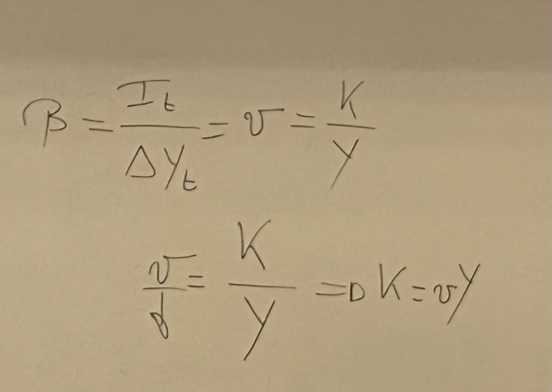 β = I_t / ΔY_t = v = K / Y
v = K / Y => K = vY